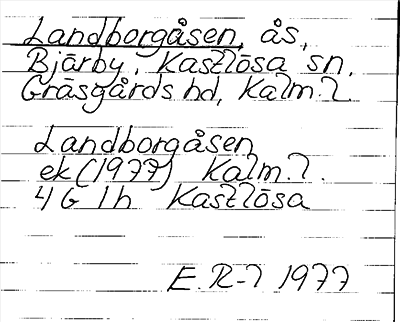 Landborgåsen, ås,
Bjärby, Kastlösa sn.
Gräsgårds hd, Kalm.l.
Landborgåsen
ek (1977) Kalm.l.
4G 1h Kastlösa
E.R-l 1977